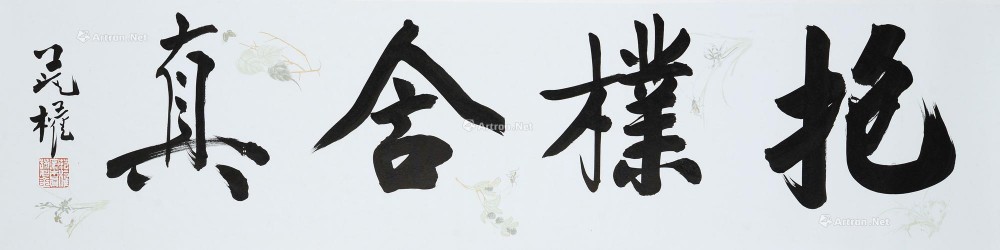 抱樸舍真
Artron.Net
Artron.Net
Artron.Net